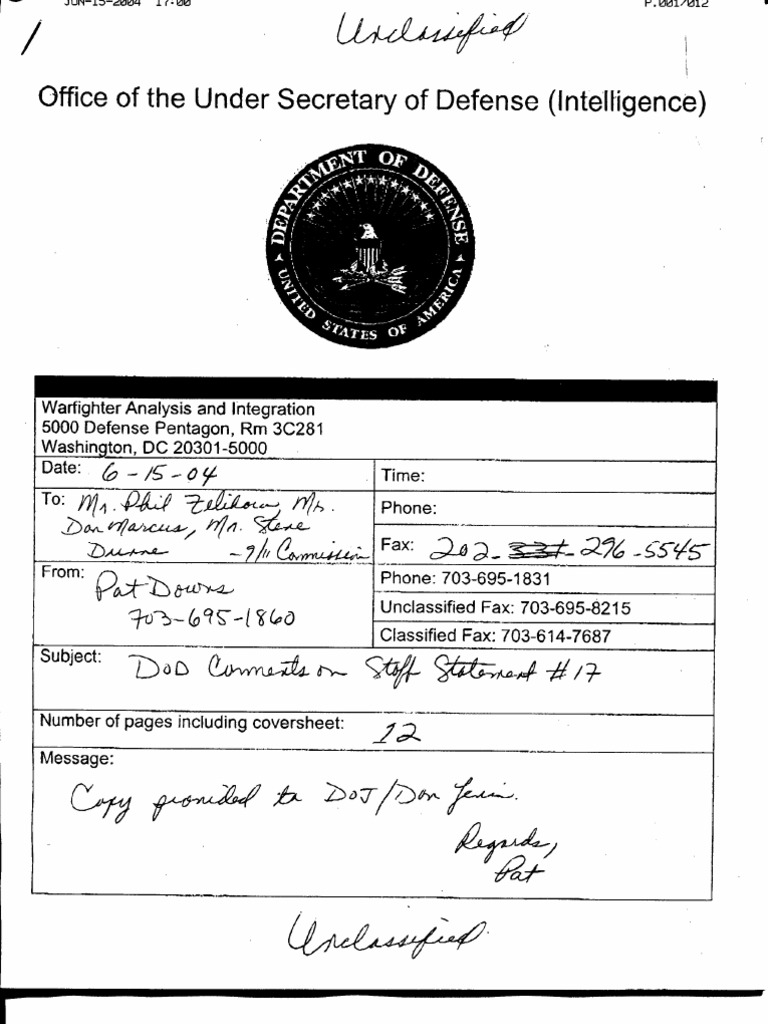 JUN-15-2004 17:00 P.001/012
Unclassified
Office of the Under Secretary of Defense (Intelligence)
DEPARTMENT OF DEFENSE
UNITED STATES OF AMERICA
Warfighter Analysis and Integration
5000 Defense Pentagon, Rm 3C281
Washington, DC 20301-5000
Date: 6-15-04
Time:
To: Mr. Phil Zelikow, Mr.
Dan Marcus, Mr. Steve
Dunne - 9/11 Commission
Phone:
Fax: 202-331-296-5545
From: Pat Downs
703-695-1860
Phone: 703-695-1831
Unclassified Fax: 703-695-8215
Classified Fax: 703-614-7687
Subject: DoD Comments on Staff Statement #17
Number of pages including coversheet: 12
Message:
Copy provided to DOJ/Dan
Regards,
Pat
Unclassified